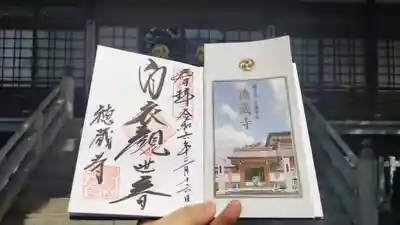 奉拝 令和六年三月十六日
白衣観世音
徳蔵寺
徳蔵寺